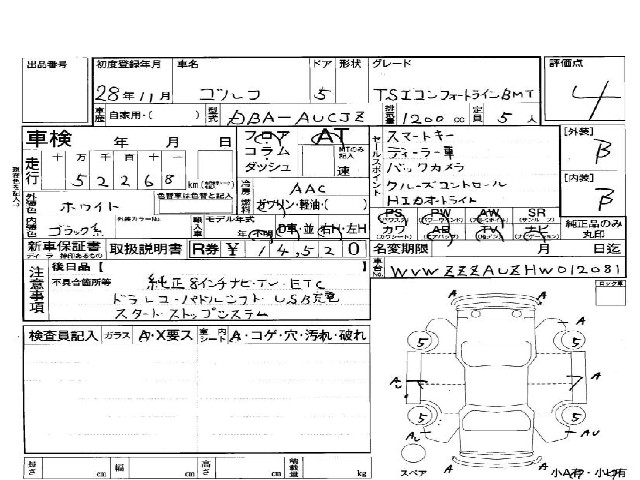 出品番号 初度登録年月 車名 ドア 形状 グレード 評価点
28年11月 ゴルフ 5 TSIコンフォートラインBMT 4
車歴 自家用・( ) 型式 DBA-AUCJZ 排気量 1200 cc 定員 5 人
車検 年 月 日 フロア AT セールスポイント スマートキー [外装]
コラム MTのみ記入 ディーラー車 B
走行 十 万 千 百 十 ダッシュ 速 バックカメラ
5 2 2 6 8 km 冷房 AAC クルーズコントロール [内装]
外装色 ホワイト 色替車は色替前の色 燃料 ガソリン・軽油・( ) HIDオートライト B
PS PW AW SR
内装色 ブラック系 外装カラーNo. 輸入車 モデル年式 D車・並 右H・左H カワ AB TV ナビ 純正品のみ丸印
新車保証書 取扱説明書 R券 ¥ 14,520 名変期限 月 日迄
ディーラー捺印あるもの
後日品【 】 車台No. WVWZZZAUZHW012081
注意事項 不具合箇所等 純正8インチナビ・TV・ETC ロック車
ドラレコ・パドルシフト USB充電
スタートストップシステム
検査員記入 ガラス A・X要ス 室内シート A・コゲ・穴・汚れ・破れ
A A
5 5
A A
A 7
5 5
AU AU
スペア A A 小A有・小凹有
長さ cm 幅 cm 高さ cm 積載量 kg